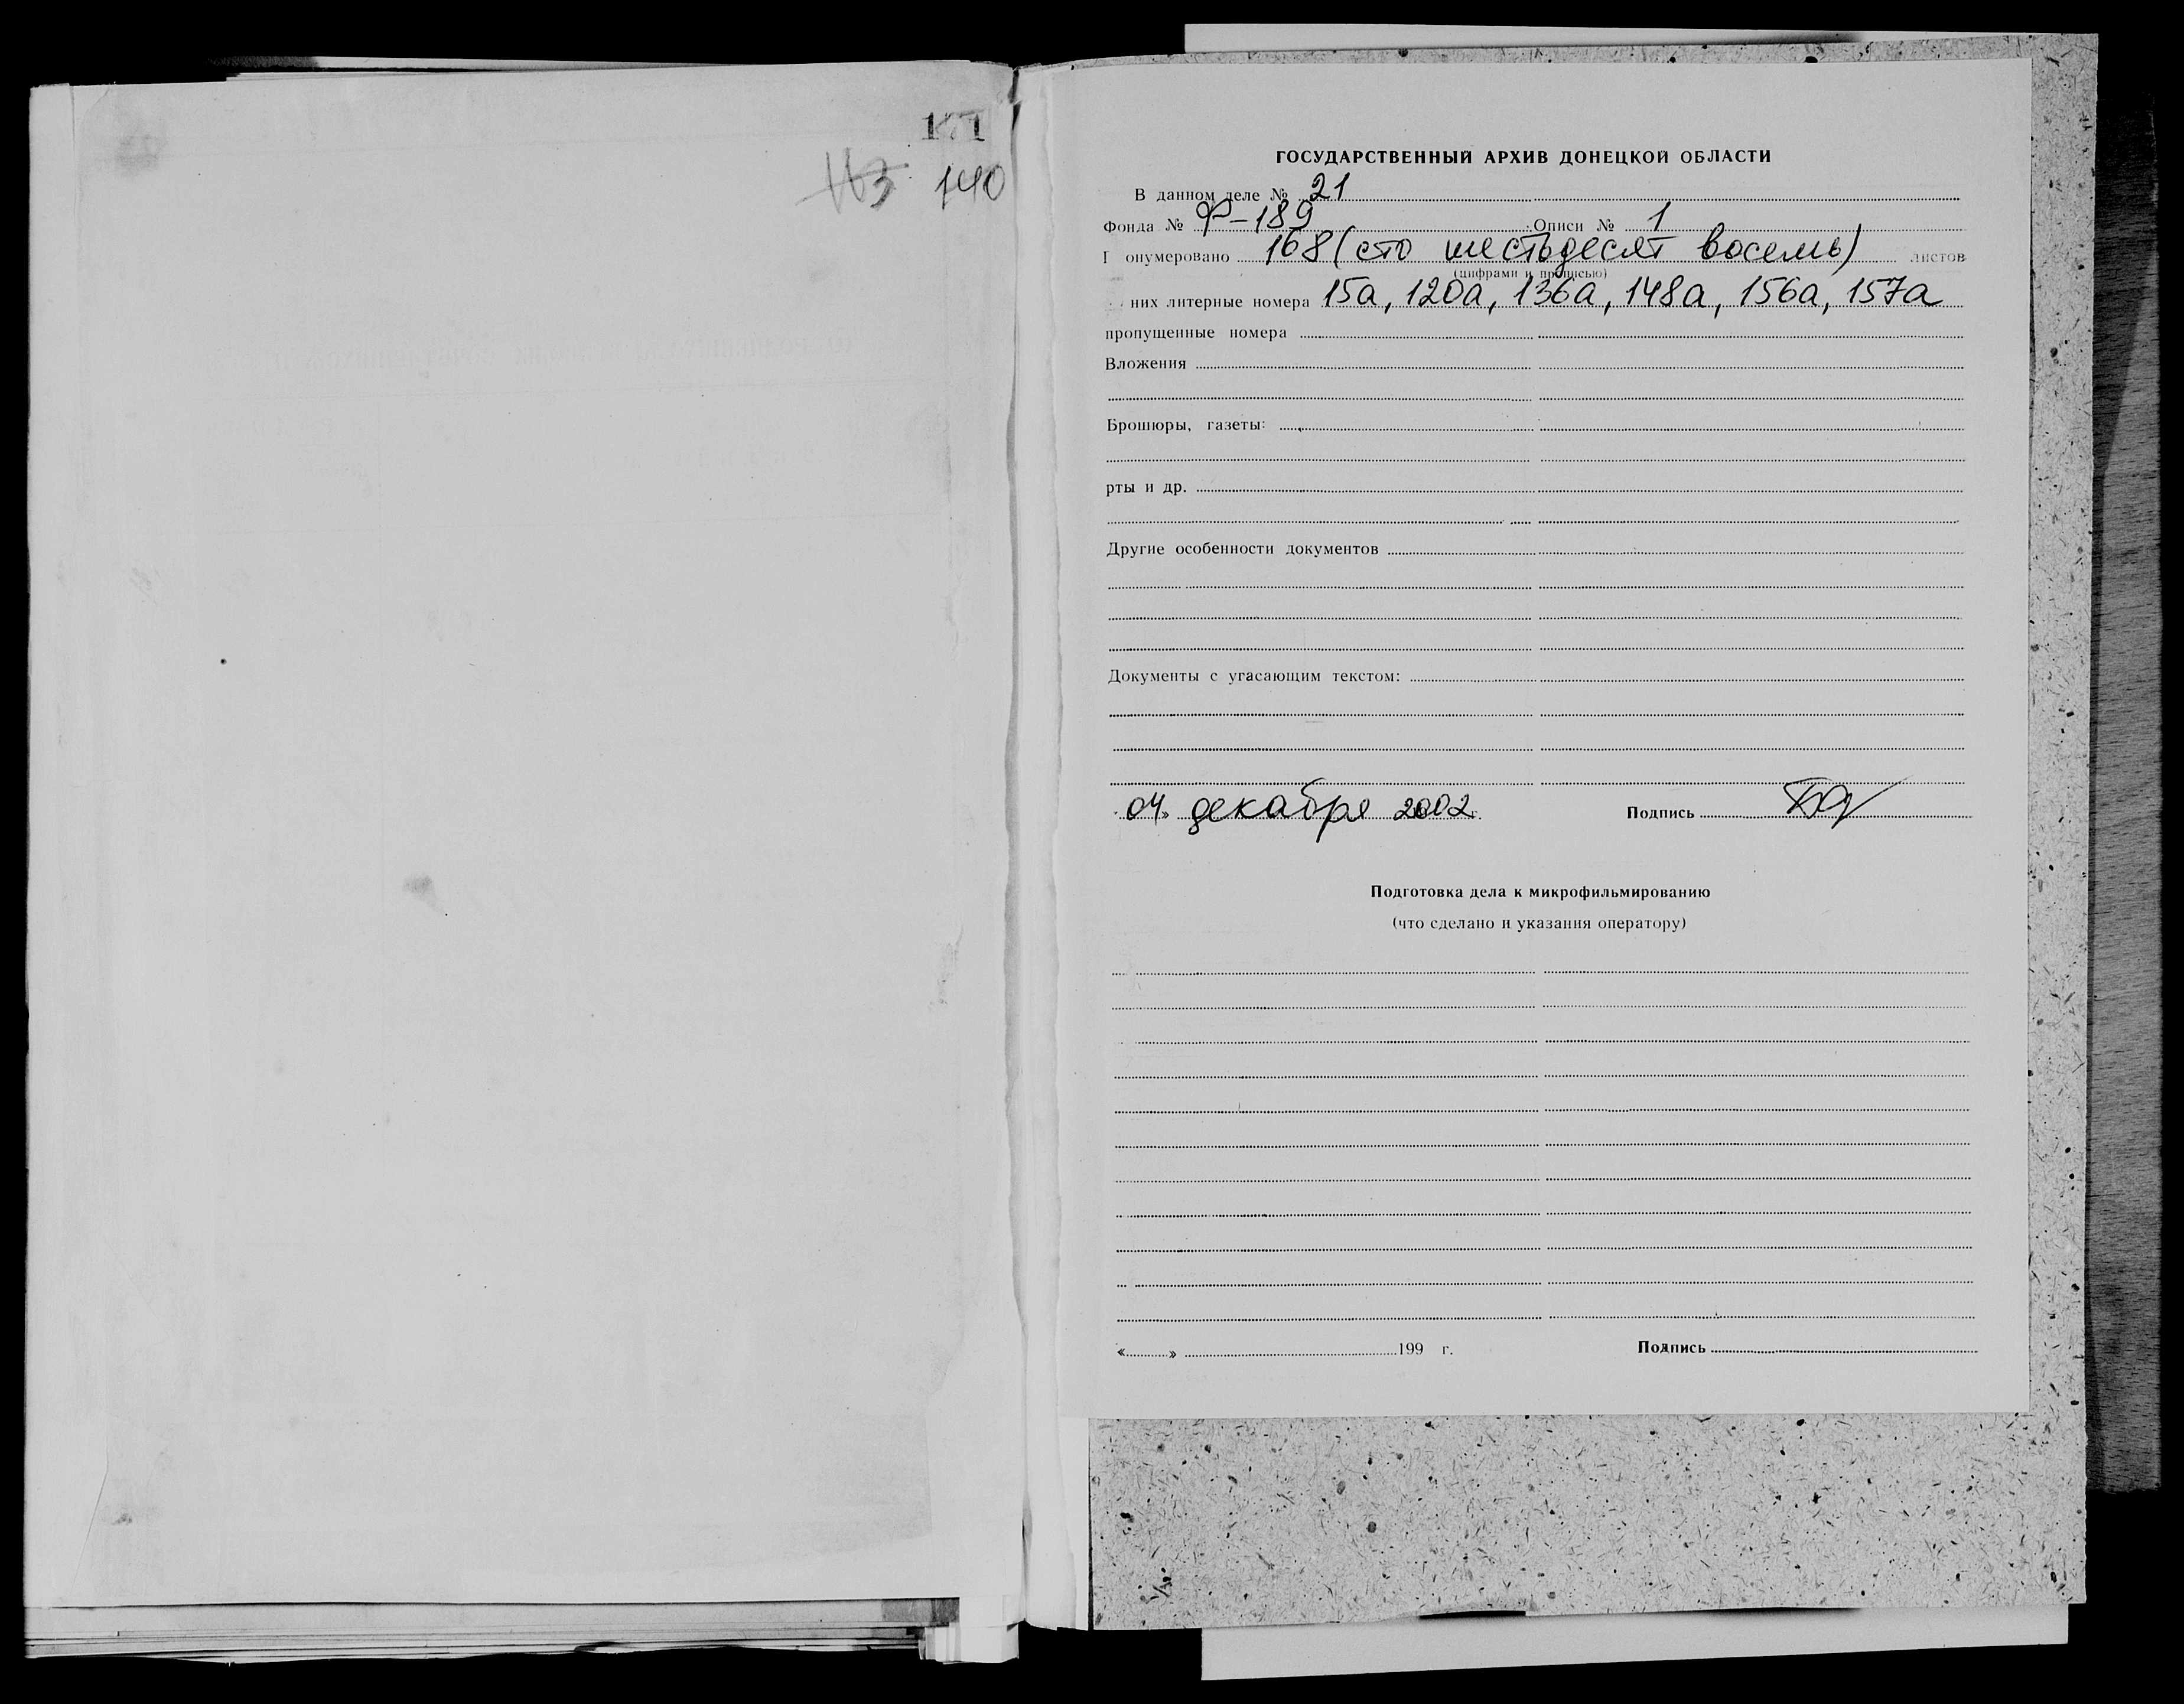 171
113 140
ГОСУДАРСТВЕННЫЙ АРХИВ ДОНЕЦКОЙ ОБЛАСТИ
В данном деле № 21
Фонда № Ф-189 Описи № 1
онумеровано 168 (сто шестьдесят восемь) листов
(цифрами и прописью)
них литерные номера 15а, 120а, 136а, 148а, 156а, 157а
пропущенные номера
Вложения
Брошюры, газеты:
рты и др.
Другие особенности документов
Документы с угасающим текстом:
04» декабря 2002 г. Подпись
Подготовка дела к микрофильмированию
(что сделано и указания оператору)
« » 199 г. Подпись